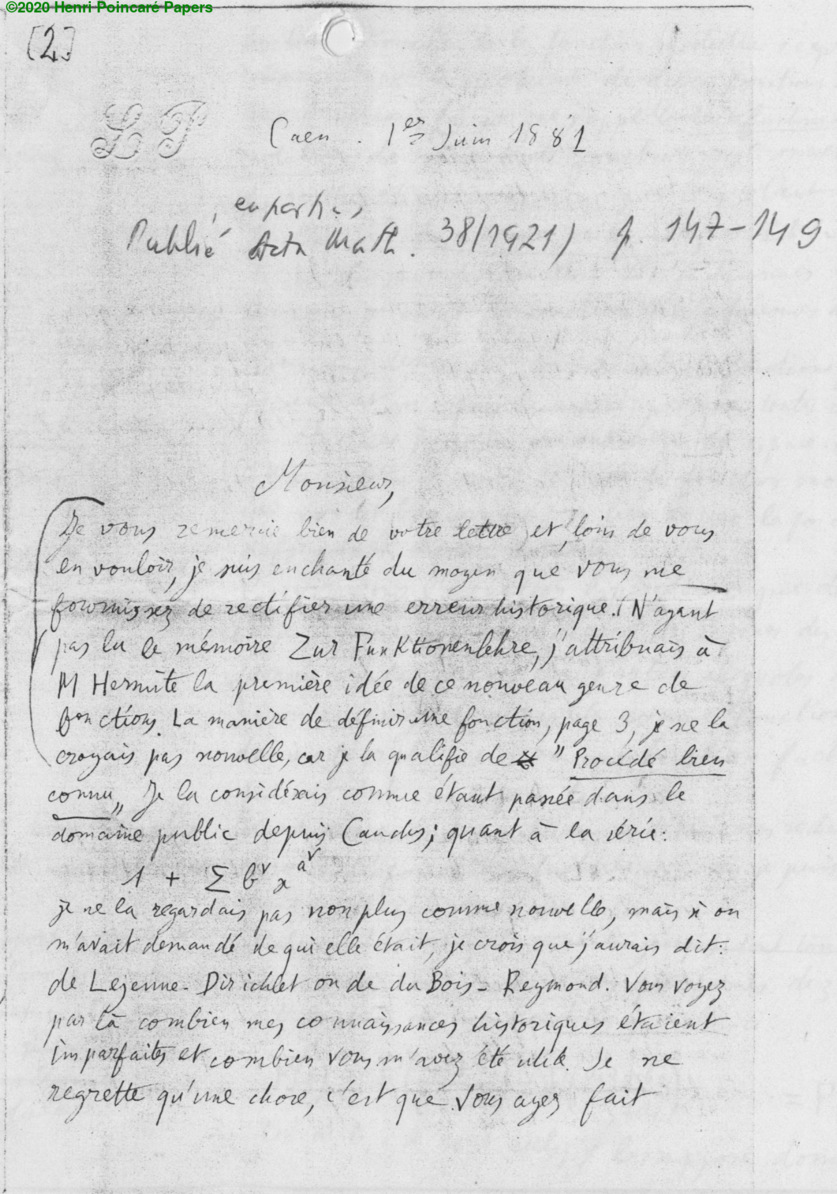 ©2020 Henri Poincaré Papers
[2]
LP
Caen. 1er Juin 1881
en partie,
Publié Acta Math. 38 (1921) p. 147-149
Monsieur,
Je vous remercie bien de votre lettre et, loin de vous
en vouloir, je suis enchanté du moyen que vous me
fournissez de rectifier une erreur historique. N'ayant
pas lu le mémoire Zur Funktionenlehre, j'attribuais à
M Hermite la première idée de ce nouveau genre de
fonctions. La manière de définir une fonction, page 3, je ne la
croyais pas nouvelle, car je la qualifie de "Procédé bien
connu" Je la considérais comme étant passée dans le
domaine public depuis Cauchy; quant à la série:
1 + Σ b^ν x^{a^ν}
je ne la regardais pas non plus comme nouvelle, mais si on
m'avait demandé de qui elle était, je crois que j'aurais dit:
de Lejeune-Dirichlet ou de du Bois-Reymond. Vous voyez
par là combien mes connaissances historiques étaient
imparfaites et combien vous m'avez été utile. Je ne
regrette qu'une chose, c'est que vous ayez fait